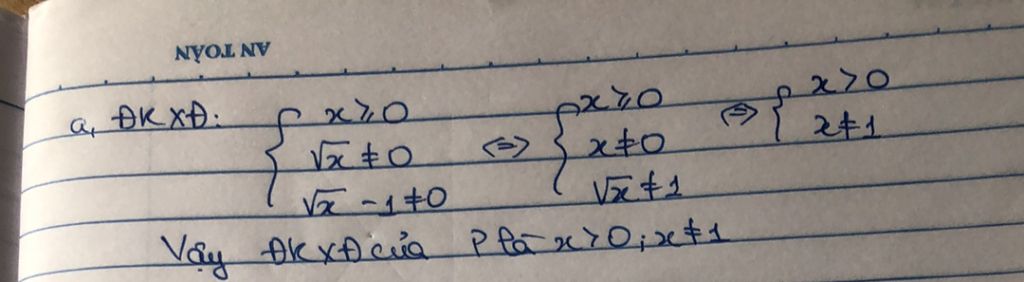 AN TOÀN
a, ĐKXĐ: { x ⩾ 0 ⇔ { x ⩾ 0 ⇔ { x > 0
√x ≠ 0 x ≠ 0 x ≠ 1
√x - 1 ≠ 0 √x ≠ 1
Vậy ĐKXĐ của P là x > 0; x ≠ 1